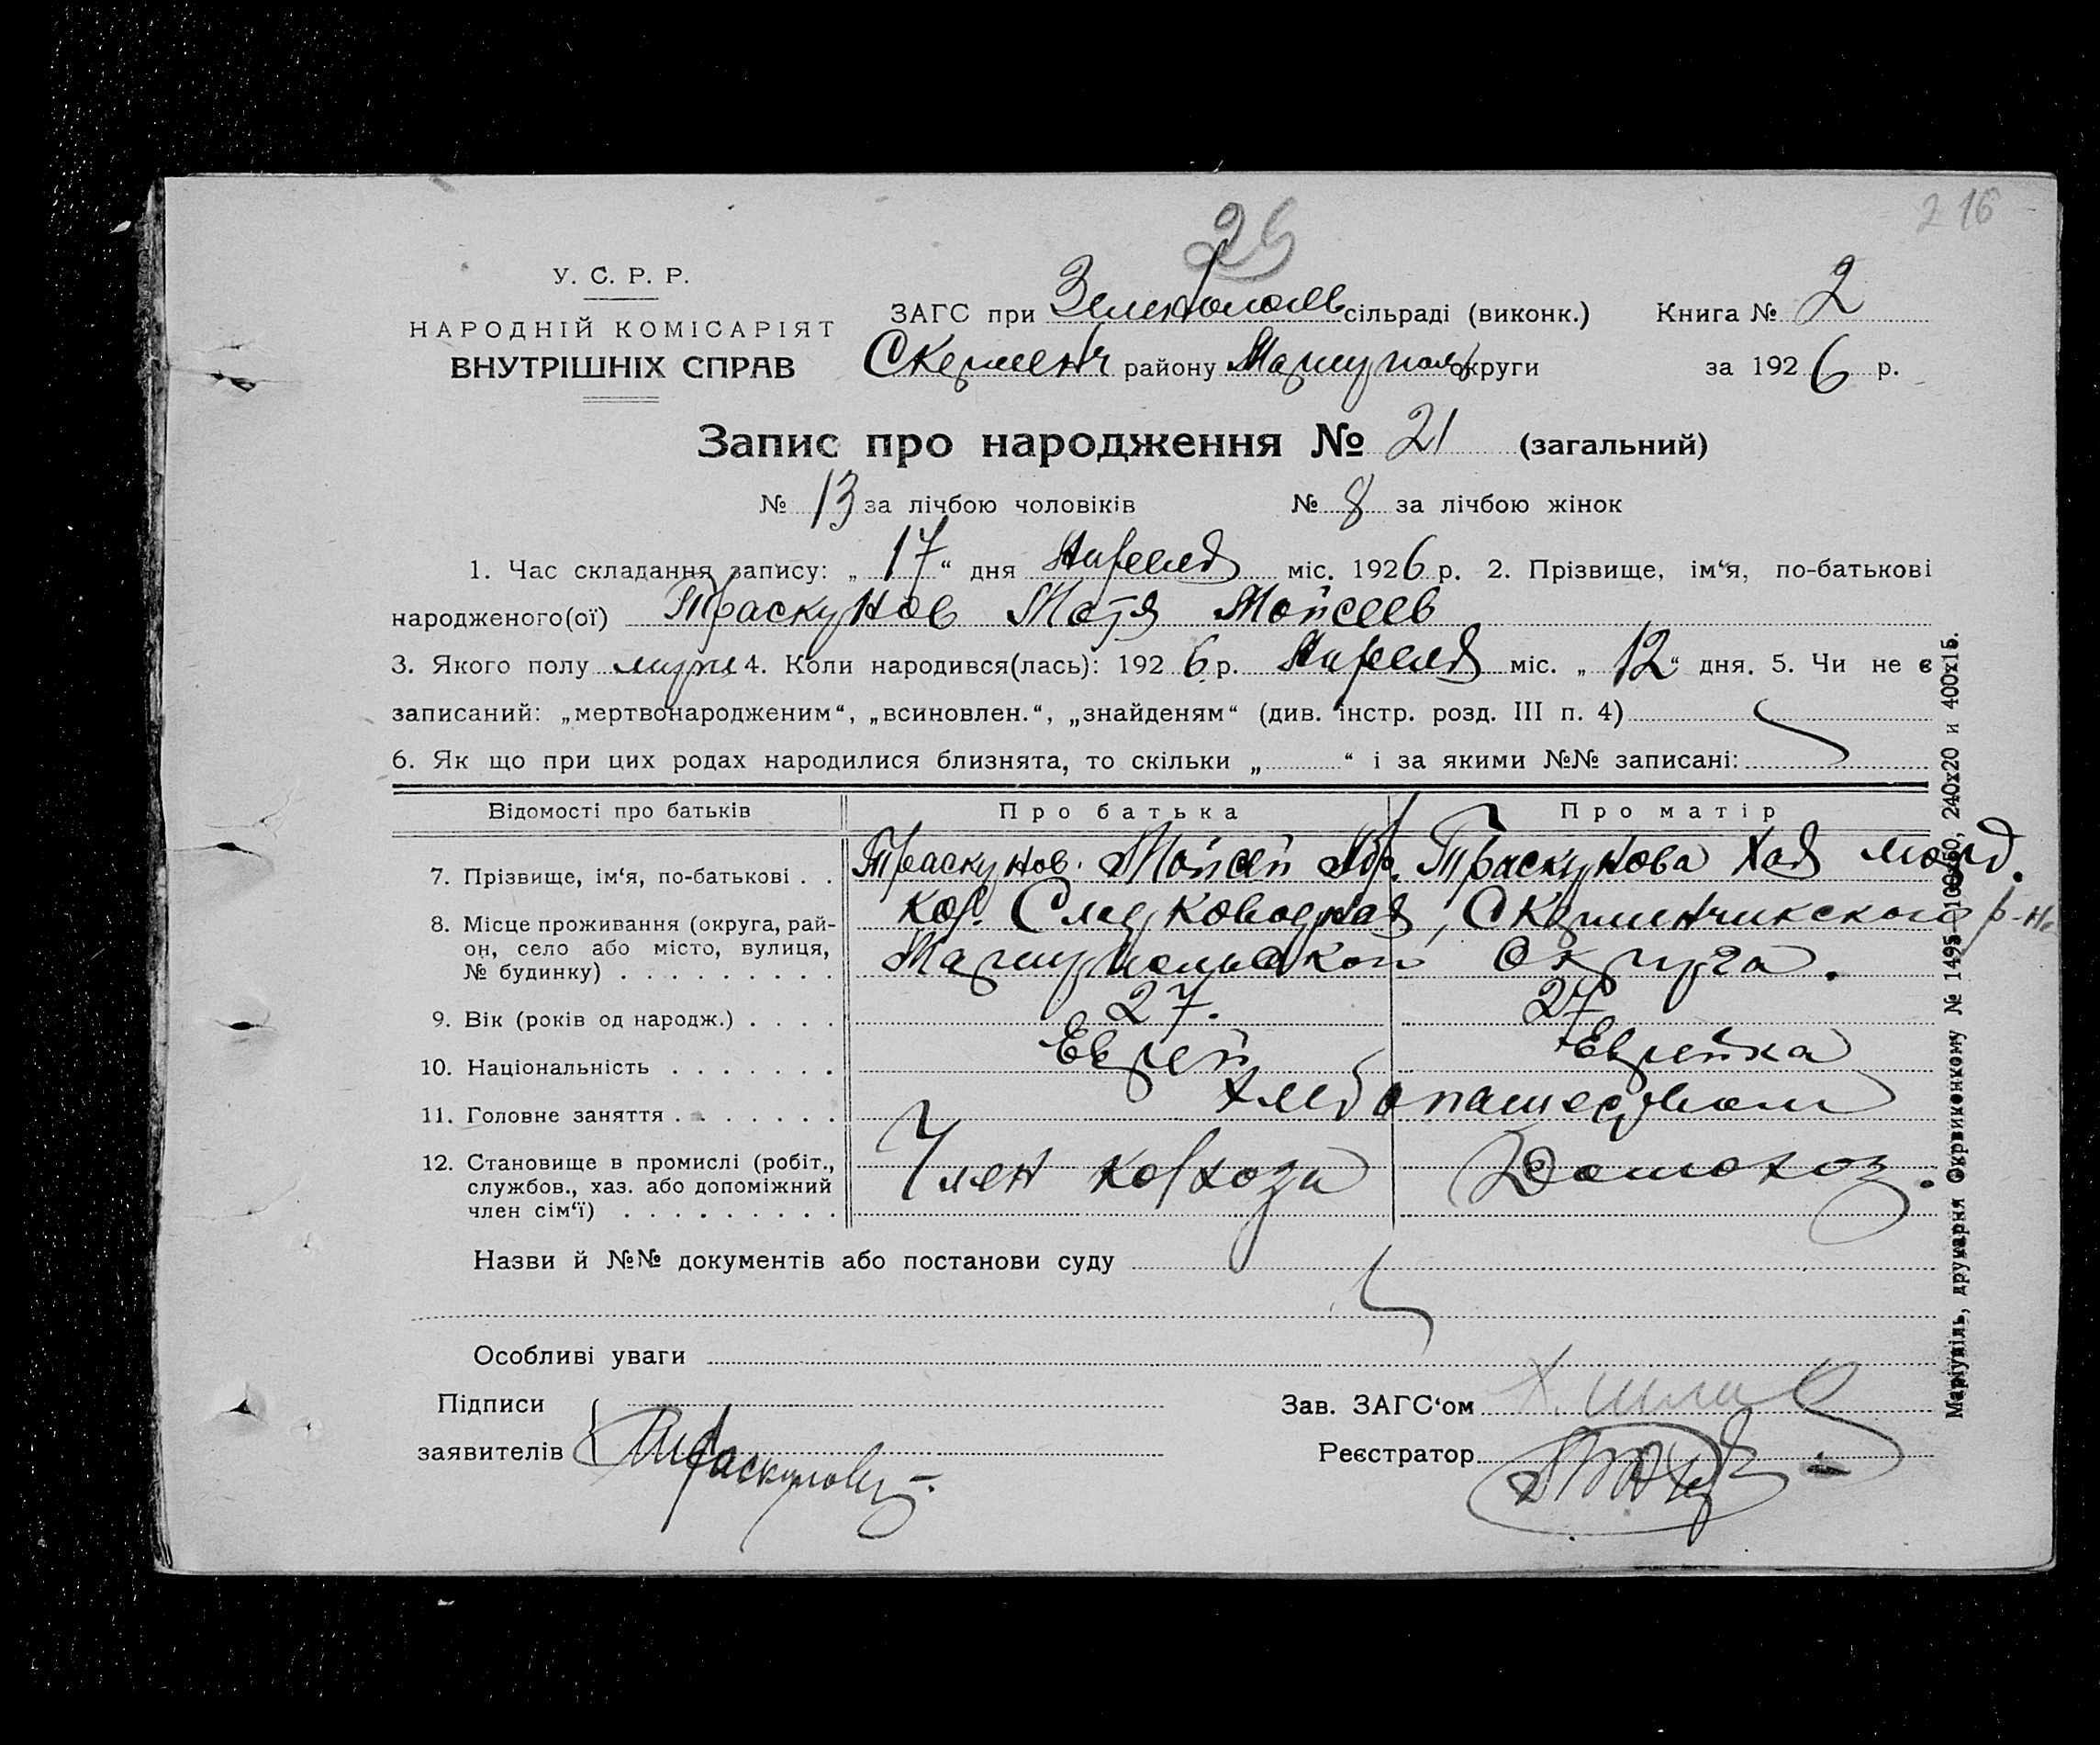 216
26
У. С. Р. Р.
НАРОДНІЙ КОМІСАРІЯТ
ВНУТРІШНІХ СПРАВ
ЗАГС при Зеленополь сільраді (виконк.) Книга № 2
Скермен району Мариупол округи за 1926 р.
Запис про народження № 21 (загальний)
№ 13 за лічбою чоловіків № 8 за лічбою жінок
1. Час складання запису: „17“ дня Апреля міс. 1926 р. 2. Прізвище, ім‘я, по-батькові
народженого(ої) Траскунов Мотя Мойсеев
3. Якого полу муж 4. Коли народився(лась): 1926 р. Апреля міс. „12“ дня. 5. Чи не є
записаний: „мертвонародженим“, „всиновлен.“, „знайденям“ (див. інстр. розд. III п. 4)
6. Як що при цих родах народилися близнята, то скільки „ “ і за якими №№ записані:
Відомості про батьків Про батька Про матір
7. Прізвище, ім‘я, по-батькові . . Траскунов Мойсей Абр. Траскунова Хая
8. Місце проживання (округа, рай-
он, село або місто, вулиця,
№ будинку) . . . . . . . . .
кол. Сладководная, Скерменчикского р-на
Мариупольской Округа.
9. Вік (років од народж.) . . . . 27. 27
10. Національність . . . . . . . Еврей Еврейка
11. Головне заняття . . . . . . . Хлебопашеством
12. Становище в промислі (робіт.,
службов., хаз. або допоміжний
член сім‘ї) . . . . . . . . .
Член колхоза Домохоз.
Назви й №№ документів або постанови суду
Особливі уваги
Підписи
заявителів Траскунов
Зав. ЗАГС‘ом
Реєстратор
Маріупіль, друкарня Окрвиконкому № 1495—100х50, 240х20 и 400х15.